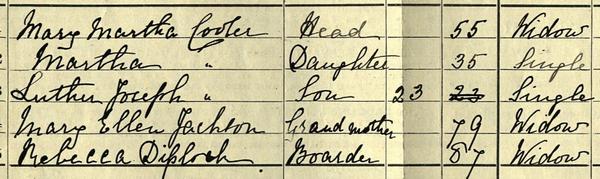 Mary Martha Cooler Head 55 Widow
Martha " Daughter 35 Single
Luther Joseph " Son 23 23 Single
Mary Ellen Jackton Grandmother 79 Widow
Rebecca Diplock Boarder 87 Widow